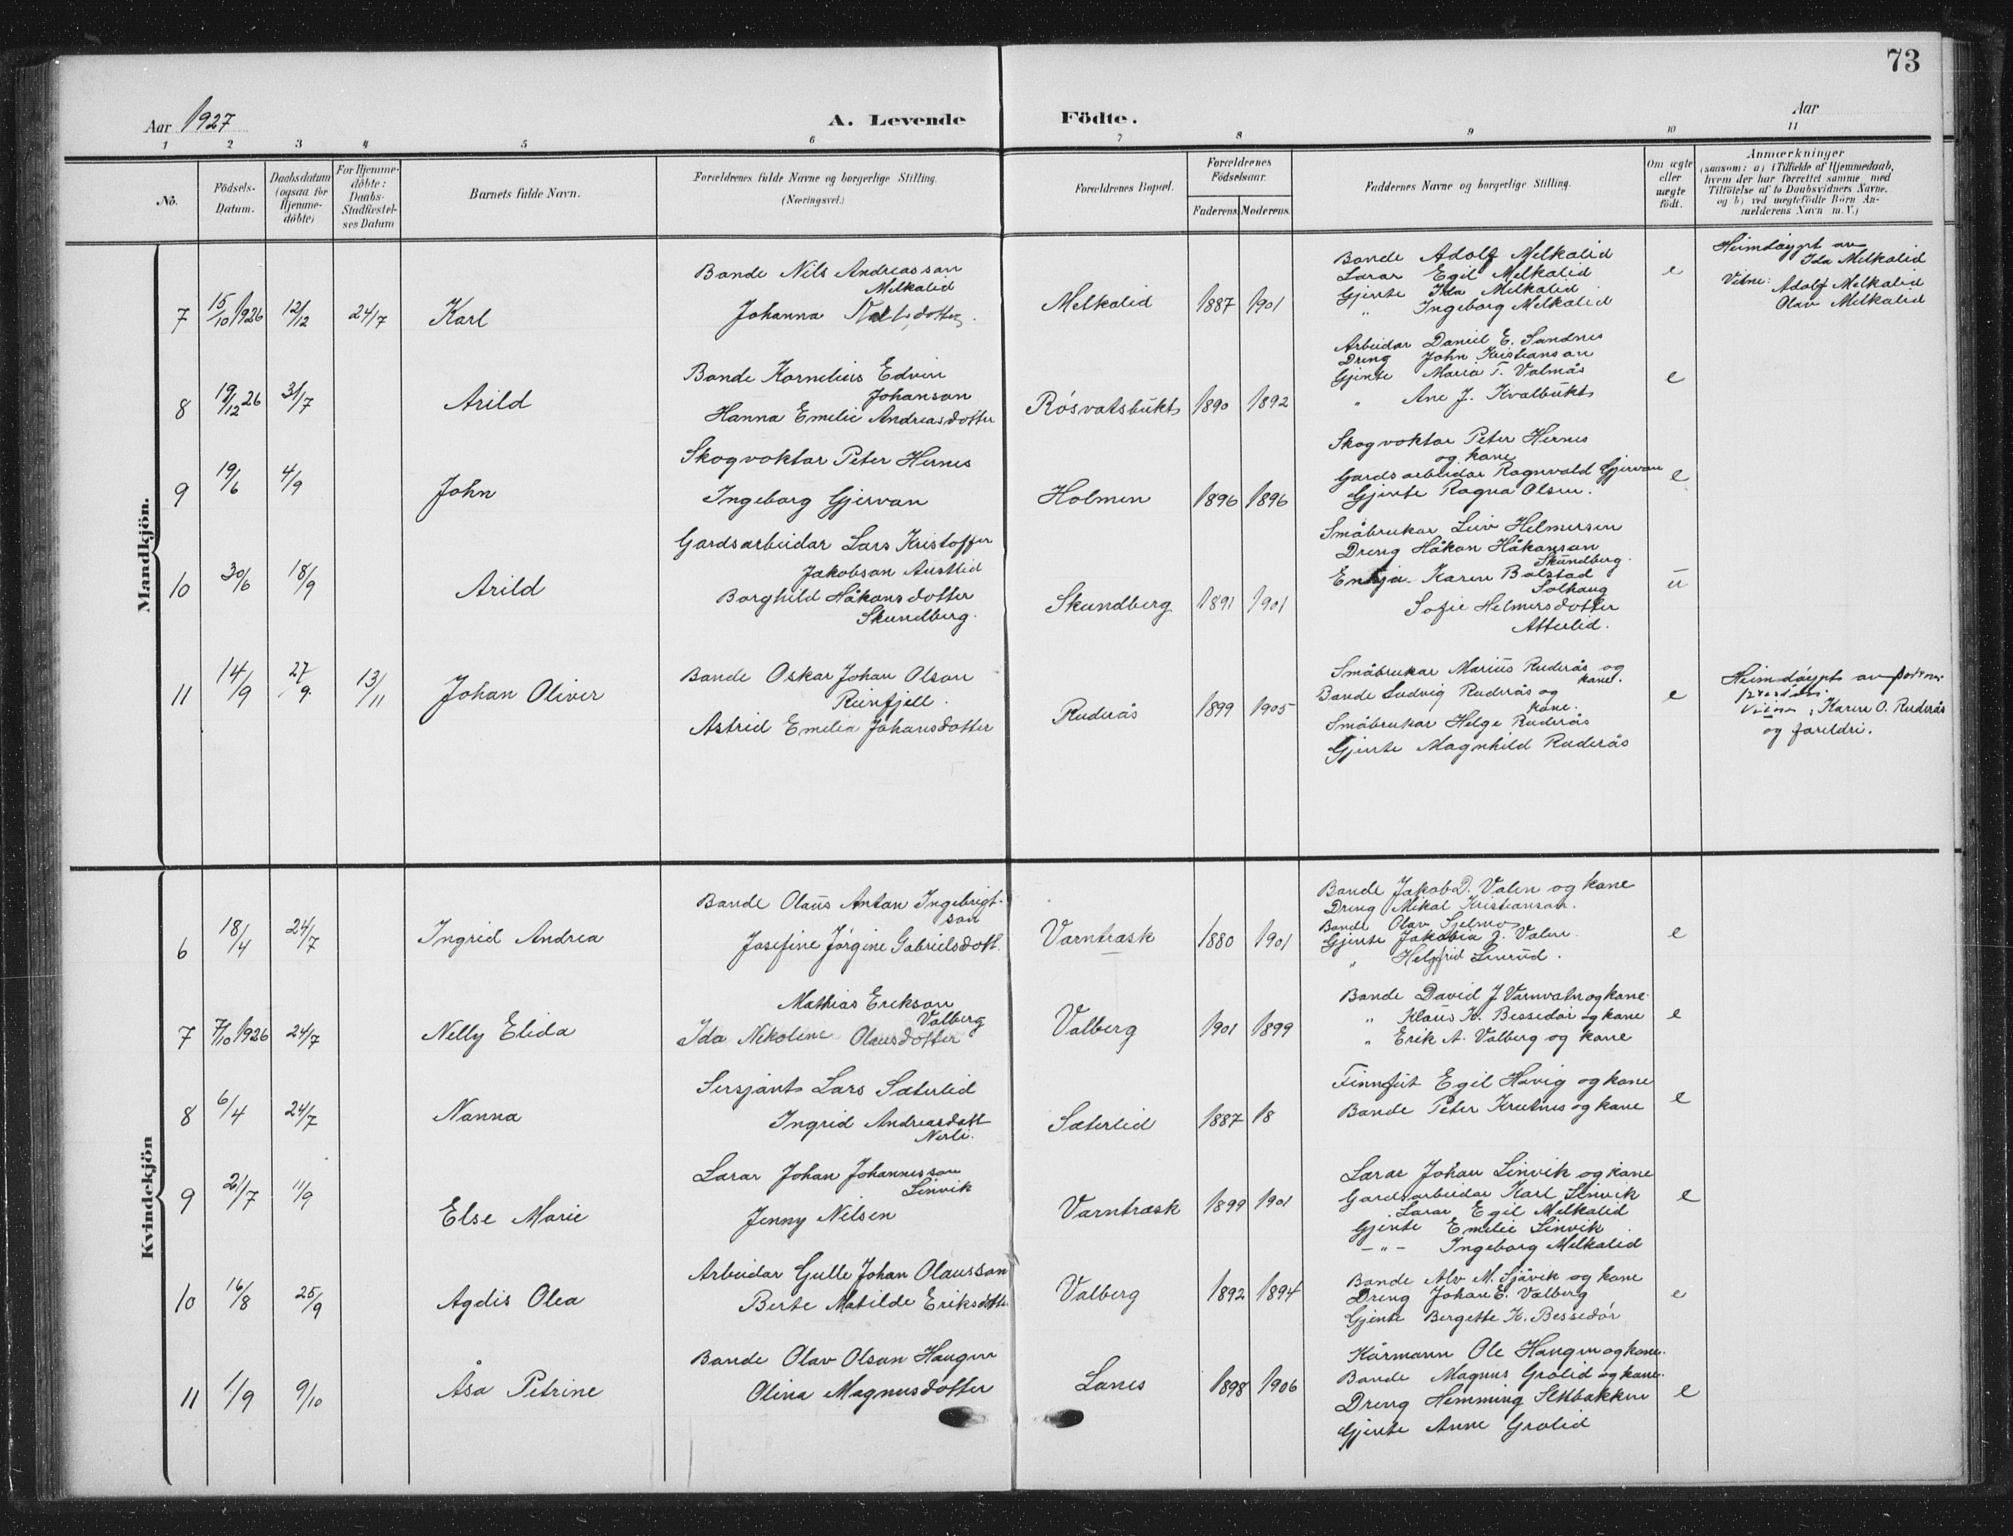 73
Aar 1927
A. Levende
Födte.
Aar
1 2 3 4 5 6 7 8 9 10 11
No.
Födsels-
Datum.
Daabsdatum
(ogsaa for
Hjemme-
döbte)
For Hjemme-
döbte:
Daabs-
Stadfestel-
ses Datum
Barnets fulde Navn.
Forældrenes fulde Navne og borgerlige Stilling.
(Næringsvei.)
Forældrenes Bopæl.
Forældrenes
Födselsaar.
Faderens. Moderens.
Faddernes Navne og borgerlige Stilling.
Om ægte
eller
uægte
födt.
Anmærkninger
(saasom: a) i Tilfælde af Hjemmedaab,
hvem der har forrettet samme med
Tilföielse af to Daabsvidners Navne,
og b) ved uægtefödte Börn An-
melderens Navn m. V.)
Mandkjön.
7 15/10 1926 12/12 24/7 Karl
Bonde Nils Andreasson
Melkalid
Johanna
Melkalid 1887 1901
Bonde Adolf Melkalid
Lærar Egil Melkalid
Gjente Ida Melkalid
" Ingeborg Melkalid
e
Heimdøypt av
Ida Melkalid
Vitne: Adolf Melkalid
Olav Melkalid
8 19/12 26 31/7 Arild
Bonde Kornelius Edvin
Johanson
Hanna Emelie Andreasdotter
Røsvatsbukt 1890 1892
Arbeidar Daniel E. Sandnes
Dreng John Kristianson
Gjente Maria T. Valmås
" Ane J. Kvalbukt
e
9 19/6 4/9 John
Skogvoktar Peter Hernes
Ingeborg Gjervan
Holmen 1896 1896
Skogvoktar Peter Hernes
og kone
Gardsarbeidar Ragnvald Gjervan
Gjente Ragna Olsen.
e
10 30/6 18/9 Arild
Gardsarbeidar Lars Kristoffer
Jakobson Austlid
Borghild Håkonsdotter
Skundberg.
Skundberg 1891 1901
Småbrukar Leiv Helmersen
Dreng Håkon Håkonson
Skundberg.
Enkja Karen Bolstad
Solhaug
Sofie Helmersdotter
Atterlid.
u
11 14/9 27/9. 13/11 Johan Oliver
Bonde Oskar Johan Olson
Reinfjell.
Astrid Emelia Johansdotter
Ruderås 1899 1905
Småbrukar Marius Ruderås og
kone.
Bonde Ludvig Ruderås og
kone.
Småbrukar Helge Ruderås
Gjente Magnhild Ruderås
e
Heimdøypt av
Karen O. Ruderås
og foreldri.
Kvindekjön
6 18/4 24/7 Ingrid Andrea
Bonde Olaus Antan Ingebrigt-
son
Josefine Jørgine Gabrielsdott.
Varntræsk 1880 1901
Bonde Jakob D. Valen og kone
Dreng Mikal Kristianson.
Bonde Olav Sjelmo
Gjente Jakobia J. Valen.
" Helgfrid Linrud.
e
7 7/10 1926 24/7 Nelly Elida
Mathias Erikson
Valberg
Ida Nikoline Olausdotter
Valberg 1901 1899
Bonde David J. Varnvatn og kone.
" Klaus K. Bessedør og kone
" Erik A. Valberg og kone
e
8 6/4 24/7 Nanna
Sersjant Lars Sæterlid
Ingrid Andreasdott
Nerli.
Sæterlid 1887 18
Finnfut Egil Havig og kone
Bonde Peter Krutnes og kone
e
9 21/7 11/9 Else Marie
Lærar Johan Johannesson
Linvik
Jenny Nilsen
Varntræsk 1899 1901
Lærar Johan Linvik og kone
Gardsarbeidar Karl Linvik
Lærar Egil Melkalid
Gjente Emelie Linvik
- " - Ingeborg Melkalid
e
10 16/8 25/9 Agdis Olea
Arbeidar Gulle Johan Olausson
Berte Matilde Eriksdotter
Valberg 1892 1894
Bonde Alv M. Sjåvik og kone
Dreng Johan E. Valberg
Gjente Bergette K. Bessedør
e
11 1/9 9/10 Åsa Petrine
Bonde Olav Olson Haugen
Olina Magnusdotter
Lanes 1898 1906
Kårmann Ole Haugen og kone.
Bonde Magnus Grølid og kone.
Dreng Hemming Stabbakken
Gjente Anne Grølid
e